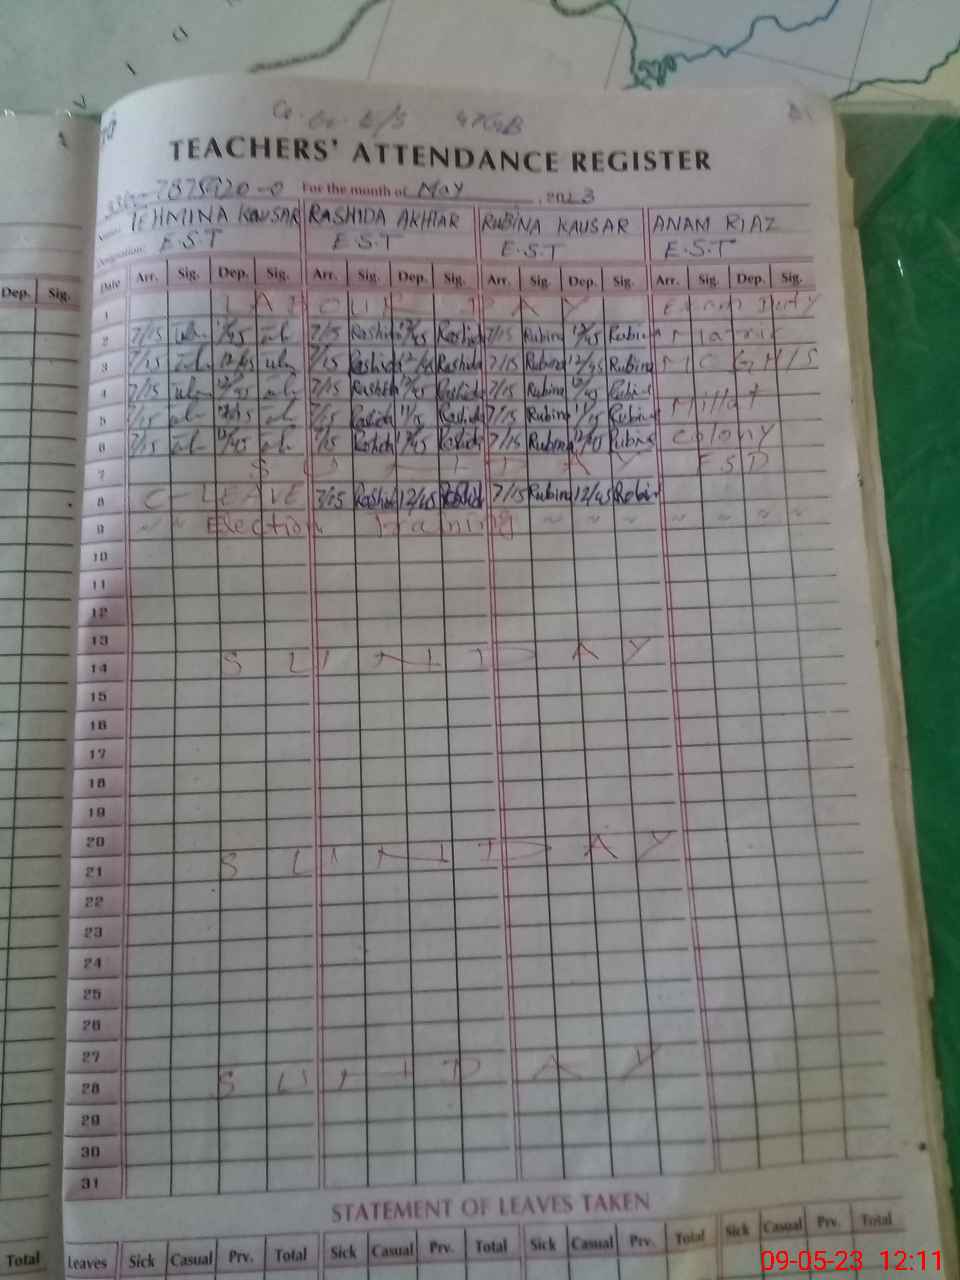 47GB
TEACHERS' ATTENDANCE REGISTER
For the month of May, 2023
TEHMINA KAUSAR RASHIDA AKHTAR RUBINA KAUSAR ANAM RIAZ
E.S.T E.S.T E.S.T E.S.T
Dep. Sig. Date Arr. Sig. Dep. Sig. Arr. Sig. Dep. Sig. Arr. Sig. Dep. Sig. Arr. Sig. Dep. Sig.
1 LABOUR DAY Exam Duty
2 7/15 12/45 7/15 Rashida 12/45 Rashida 7/15 Rubina 12/45 Rubina Matric
3 7/15 12/45 7/15 Rashida 12/45 Rashida 7/15 Rubina 12/45 Rubina M C GHS
4 7/15 12/45 7/15 Rashida 12/45 Rashida 7/15 Rubina 12/45 Rubina Millat
5 7/15 7/15 Rashida 11/15 Rashida 7/15 Rubina 11/15 Rubina
6 7/15 12/45 7/15 Rashida 12/45 Rashida 7/15 Rubina 12/45 Rubina Colony
7 SUNDAY FSD
8 C-LEAVE 7/15 Rashida 12/45 Rashida 7/15 Rubina 12/45 Rubina
9 ~ ~ Election Training ~ ~ ~ ~ ~ ~ ~
10
11
12
13
14 SUNDAY
15
16
17
18
19
20
21 SUNDAY
22
23
24
25
26
27
28 SUNDAY
29
30
31
STATEMENT OF LEAVES TAKEN
Total Leaves Sick Casual Prv. Total Sick Casual Prv. Total Sick Casual Prv. Total Sick Casual Prv. Total
09-05-23 12:11